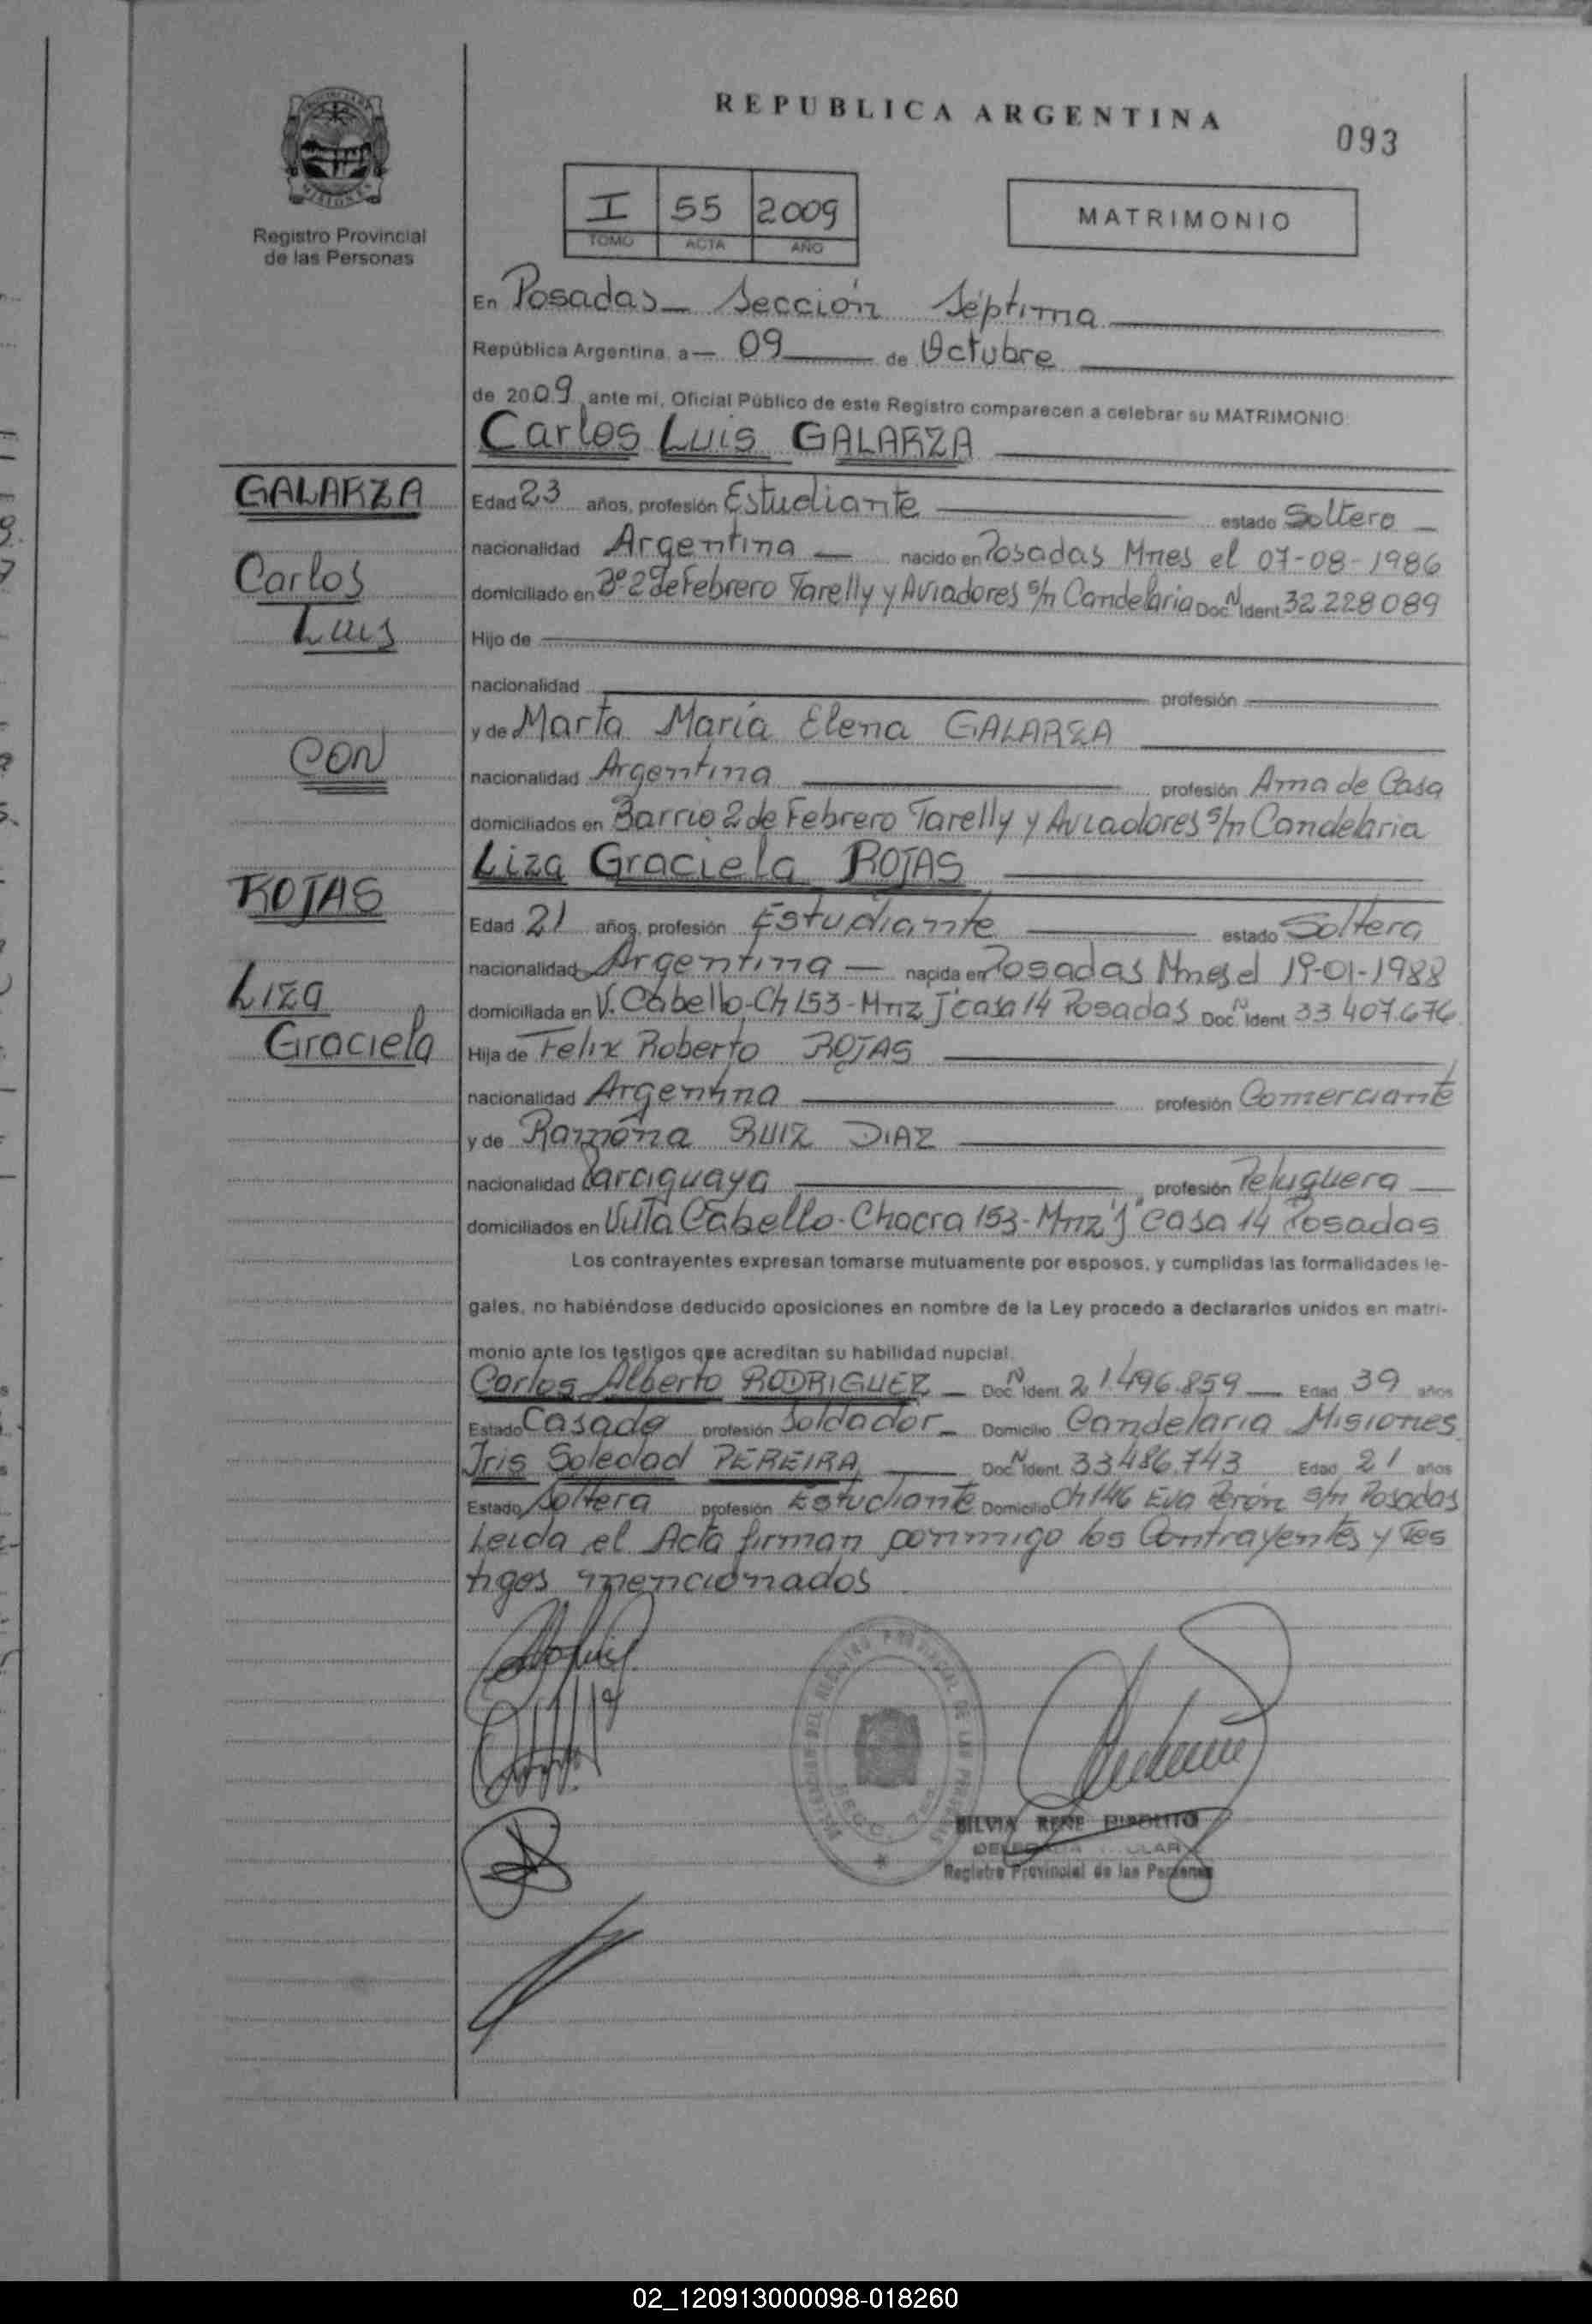 REPUBLICA ARGENTINA
093
Registro Provincial
de las Personas
I 55 2009
TOMO ACTA AÑO
MATRIMONIO
En Posadas Sección Séptima
República Argentina, a 09 de Octubre
de 2009 ante mí, Oficial Público de este Registro comparecen a celebrar su MATRIMONIO
Carlos Luis GALARZA
GALARZA
Carlos
Luis
CON
ROJAS
Liza
Graciela
Edad 23 años, profesión Estudiante estado Soltero
nacionalidad Argentina nacido en Posadas Mnes el 07-08-1986
domiciliado en Bº 2 de Febrero Tarelly y Aviadores s/n Candelaria Doc. Nº Ident 32.228.089
Hijo de
nacionalidad profesión
y de Marta María Elena GALARZA
nacionalidad Argentina profesión Ama de Casa
domiciliados en Barrio 2 de Febrero Tarelly y Aviadores s/n Candelaria
Liza Graciela ROJAS
Edad 21 años, profesión Estudiante estado Soltera
nacionalidad Argentina nacida en Posadas Mnes el 19-01-1988
domiciliada en V. Cabello-Ch 153-Mnz J casa 14 Posadas Doc. N Ident 33.407.676
Hija de Felix Roberto ROJAS
nacionalidad Argentina profesión Comerciante
y de Ramona RUIZ DIAZ
nacionalidad Paraguaya profesión Peluquera
domiciliados en Villa Cabello-Chacra 153-Mnz "J" casa 14 Posadas
Los contrayentes expresan tomarse mutuamente por esposos, y cumplidas las formalidades le-
gales, no habiéndose deducido oposiciones en nombre de la Ley procedo a declararlos unidos en matri-
monio ante los testigos que acreditan su habilidad nupcial.
Carlos Alberto RODRIGUEZ Doc. N Ident. 21.496.859 Edad 39 años
Estado Casado profesión Soldador Domicilio Candelaria Misiones
Iris Soledad PEREIRA Doc. N Ident. 33.486.743 Edad 21 años
Estado Soltera profesión Estudiante Domicilio Ch 146 Eva Perón s/n Posadas
Leida el Acta firman conmigo los Contrayentes y Tes
tigos mencionados
SILVIA RENE HIPOLITO
Registro Provincial de las Personas
02_120913000098-018260